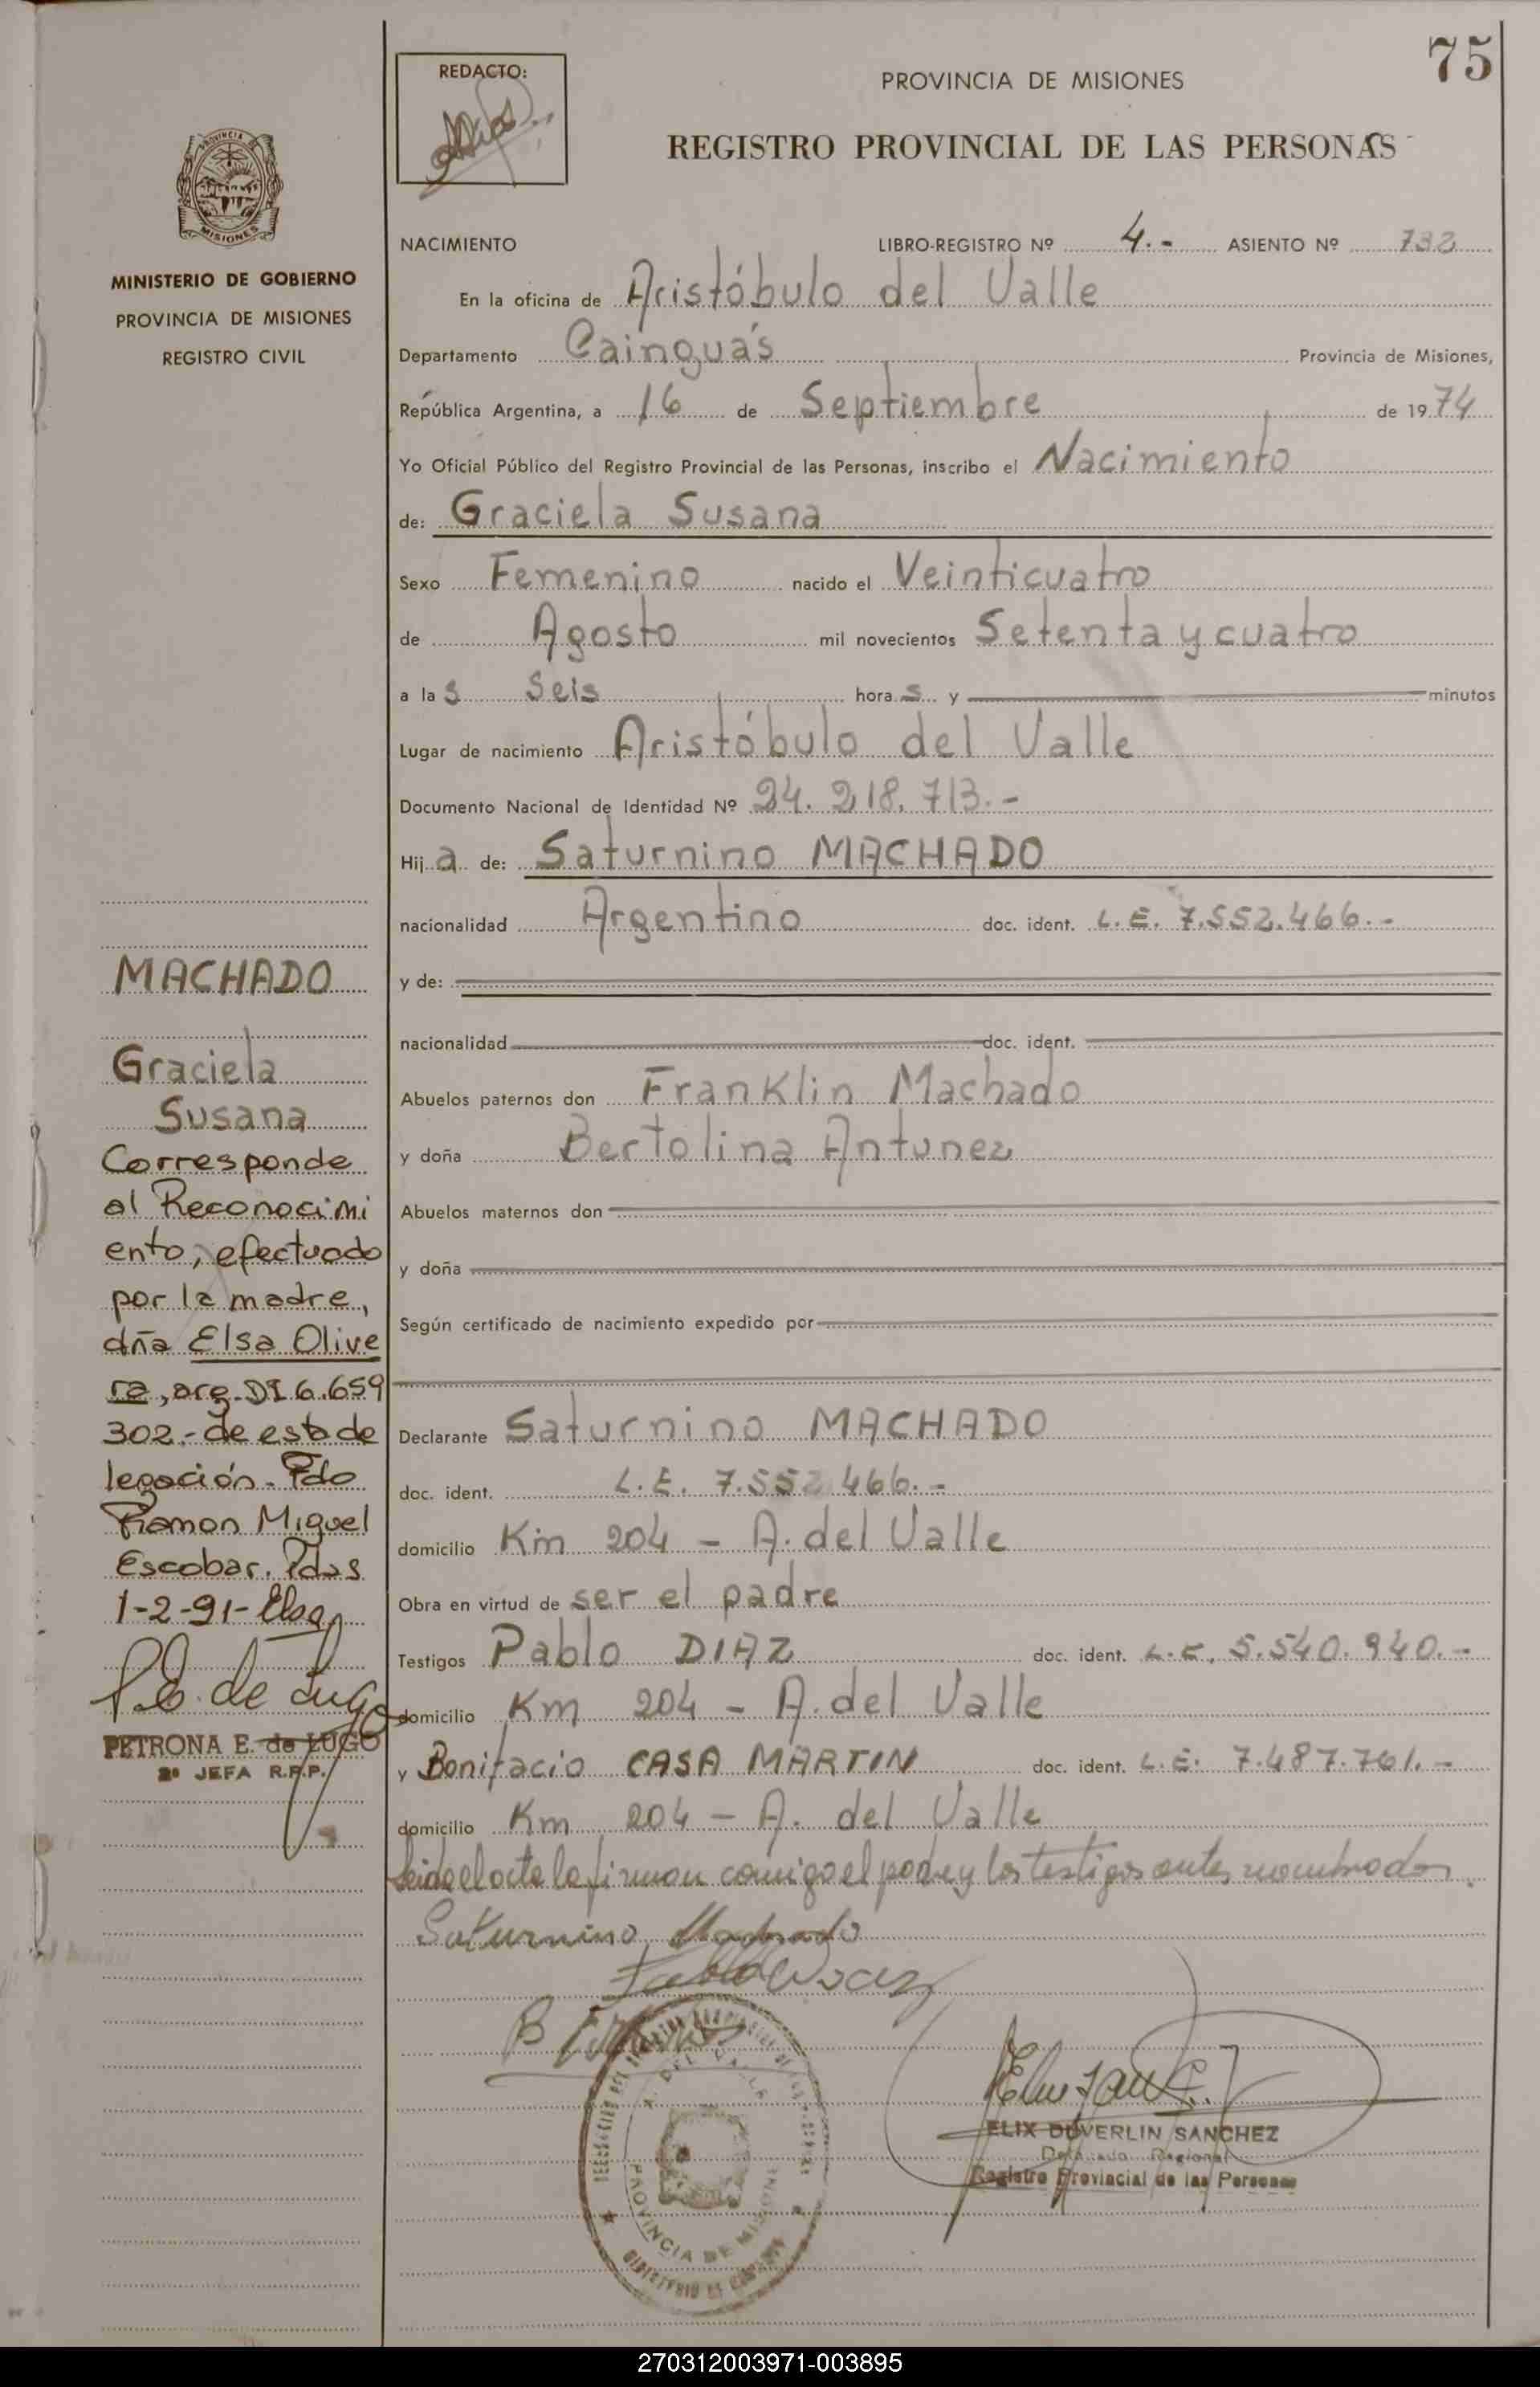 75
REDACTO:
PROVINCIA DE MISIONES
REGISTRO PROVINCIAL DE LAS PERSONAS
PROVINCIA
MISIONES
MINISTERIO DE GOBIERNO
PROVINCIA DE MISIONES
REGISTRO CIVIL
NACIMIENTO LIBRO-REGISTRO Nº 4.- ASIENTO Nº 732
En la oficina de Aristóbulo del Valle
Departamento Cainguás Provincia de Misiones,
República Argentina, a 16 de Septiembre de 1974
Yo Oficial Público del Registro Provincial de las Personas, inscribo el Nacimiento
de: Graciela Susana
Sexo Femenino nacido el Veinticuatro
de Agosto mil novecientos Setenta y cuatro
a las Seis horas y minutos
Lugar de nacimiento Aristóbulo del Valle
Documento Nacional de Identidad Nº 24.218.713.-
Hija de: Saturnino MACHADO
nacionalidad Argentino doc. ident. L.E. 7.552.466.-
y de:
nacionalidad doc. ident.
Abuelos paternos don Franklin Machado
y doña Bertolina Antunez
Abuelos maternos don
y doña
Según certificado de nacimiento expedido por
Declarante Saturnino MACHADO
doc. ident. L.E. 7.552.466.-
domicilio Km 204 - A. del Valle
Obra en virtud de ser el padre
Testigos Pablo DIAZ doc. ident. L.E. 5.540.940.-
domicilio Km 204 - A. del Valle
y Bonifacio CASA MARTIN doc. ident. L.E. 7.487.761.-
domicilio Km 204 - A. del Valle
Leida el acta la firman comigo el padre y los testigos antes nombrados.
Saturnino Machado
Pablo Diaz
MACHADO
Graciela
Susana
Corresponde
al Reconocimi
ento, efectuado
por la madre,
dña Elsa Olive
ra, arg. DI 6.659
302.- de esta de
legación. Fdo
Ramon Miguel
Escobar. Pdas
1-2-91-
P.E. de Lugo
PETRONA E. de LUGO
2º JEFA R.P.P.
A. DEL VALLE
PROVINCIA DE MISIONES
MINISTERIO DE GOBIERNO
ELIX DUVERLIN SANCHEZ
Delegado Regional
Registro Provincial de las Personas
270312003971-003895